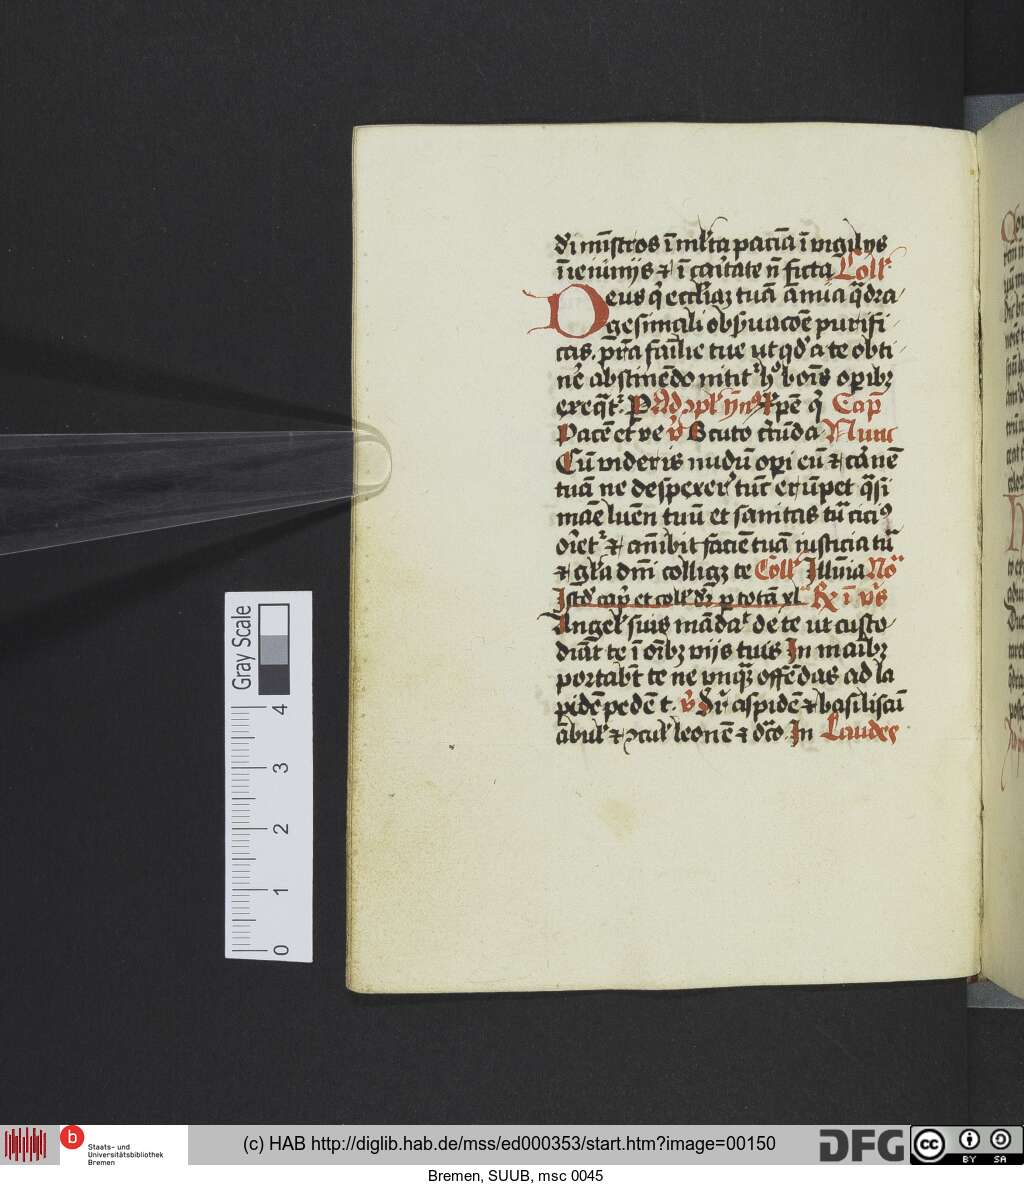 di mīstros ī ml'ta paciā ī vigilijs
ī ieiunijs ⁊ ī caritate n̄ ficta Coll'
Deus q' eccliaȝ tuā ānua q̄dra
gesimali obſuacōe purifi
cas. p̄ra famlie tue ut qd' a te obti
nē abstinēdo nitit' h' boīs operibȝ
Cap̄
Pacē et ve v̄ Scuto circūda Nunc
Cū videris nudū opi eū ⁊ carnē
tuā ne despexer' tūc erūpet q̄si
māe lumen tuū et sanitas tua cici'
oriet' ⁊ anībit faciē tuā iusticia tua
⁊ gl'a dnī colligȝ te Coll' Illuīa No
Istd' cap̄ et coll' dr̄ p totā xl' R ī v̄s
Angel' suis māda' de te ut custo
diāt te ī oībȝ vijs tuis In maībȝ
portabt̄ te ne vnqȝ offēdas ad la
pidē pedē t. v̄ Sr̄ aspidē ⁊ basiliscū
ābul' ⁊ ɔcul' leonē ⁊ dr̄co. In Laudes
Gray Scale
4
3
2
1
0
b
Staats- und
Universitätsbibliothek
Bremen
(c) HAB http://diglib.hab.de/mss/ed000353/start.htm?image=00150
DFG
cc
BY SA
Bremen, SUUB, msc 0045